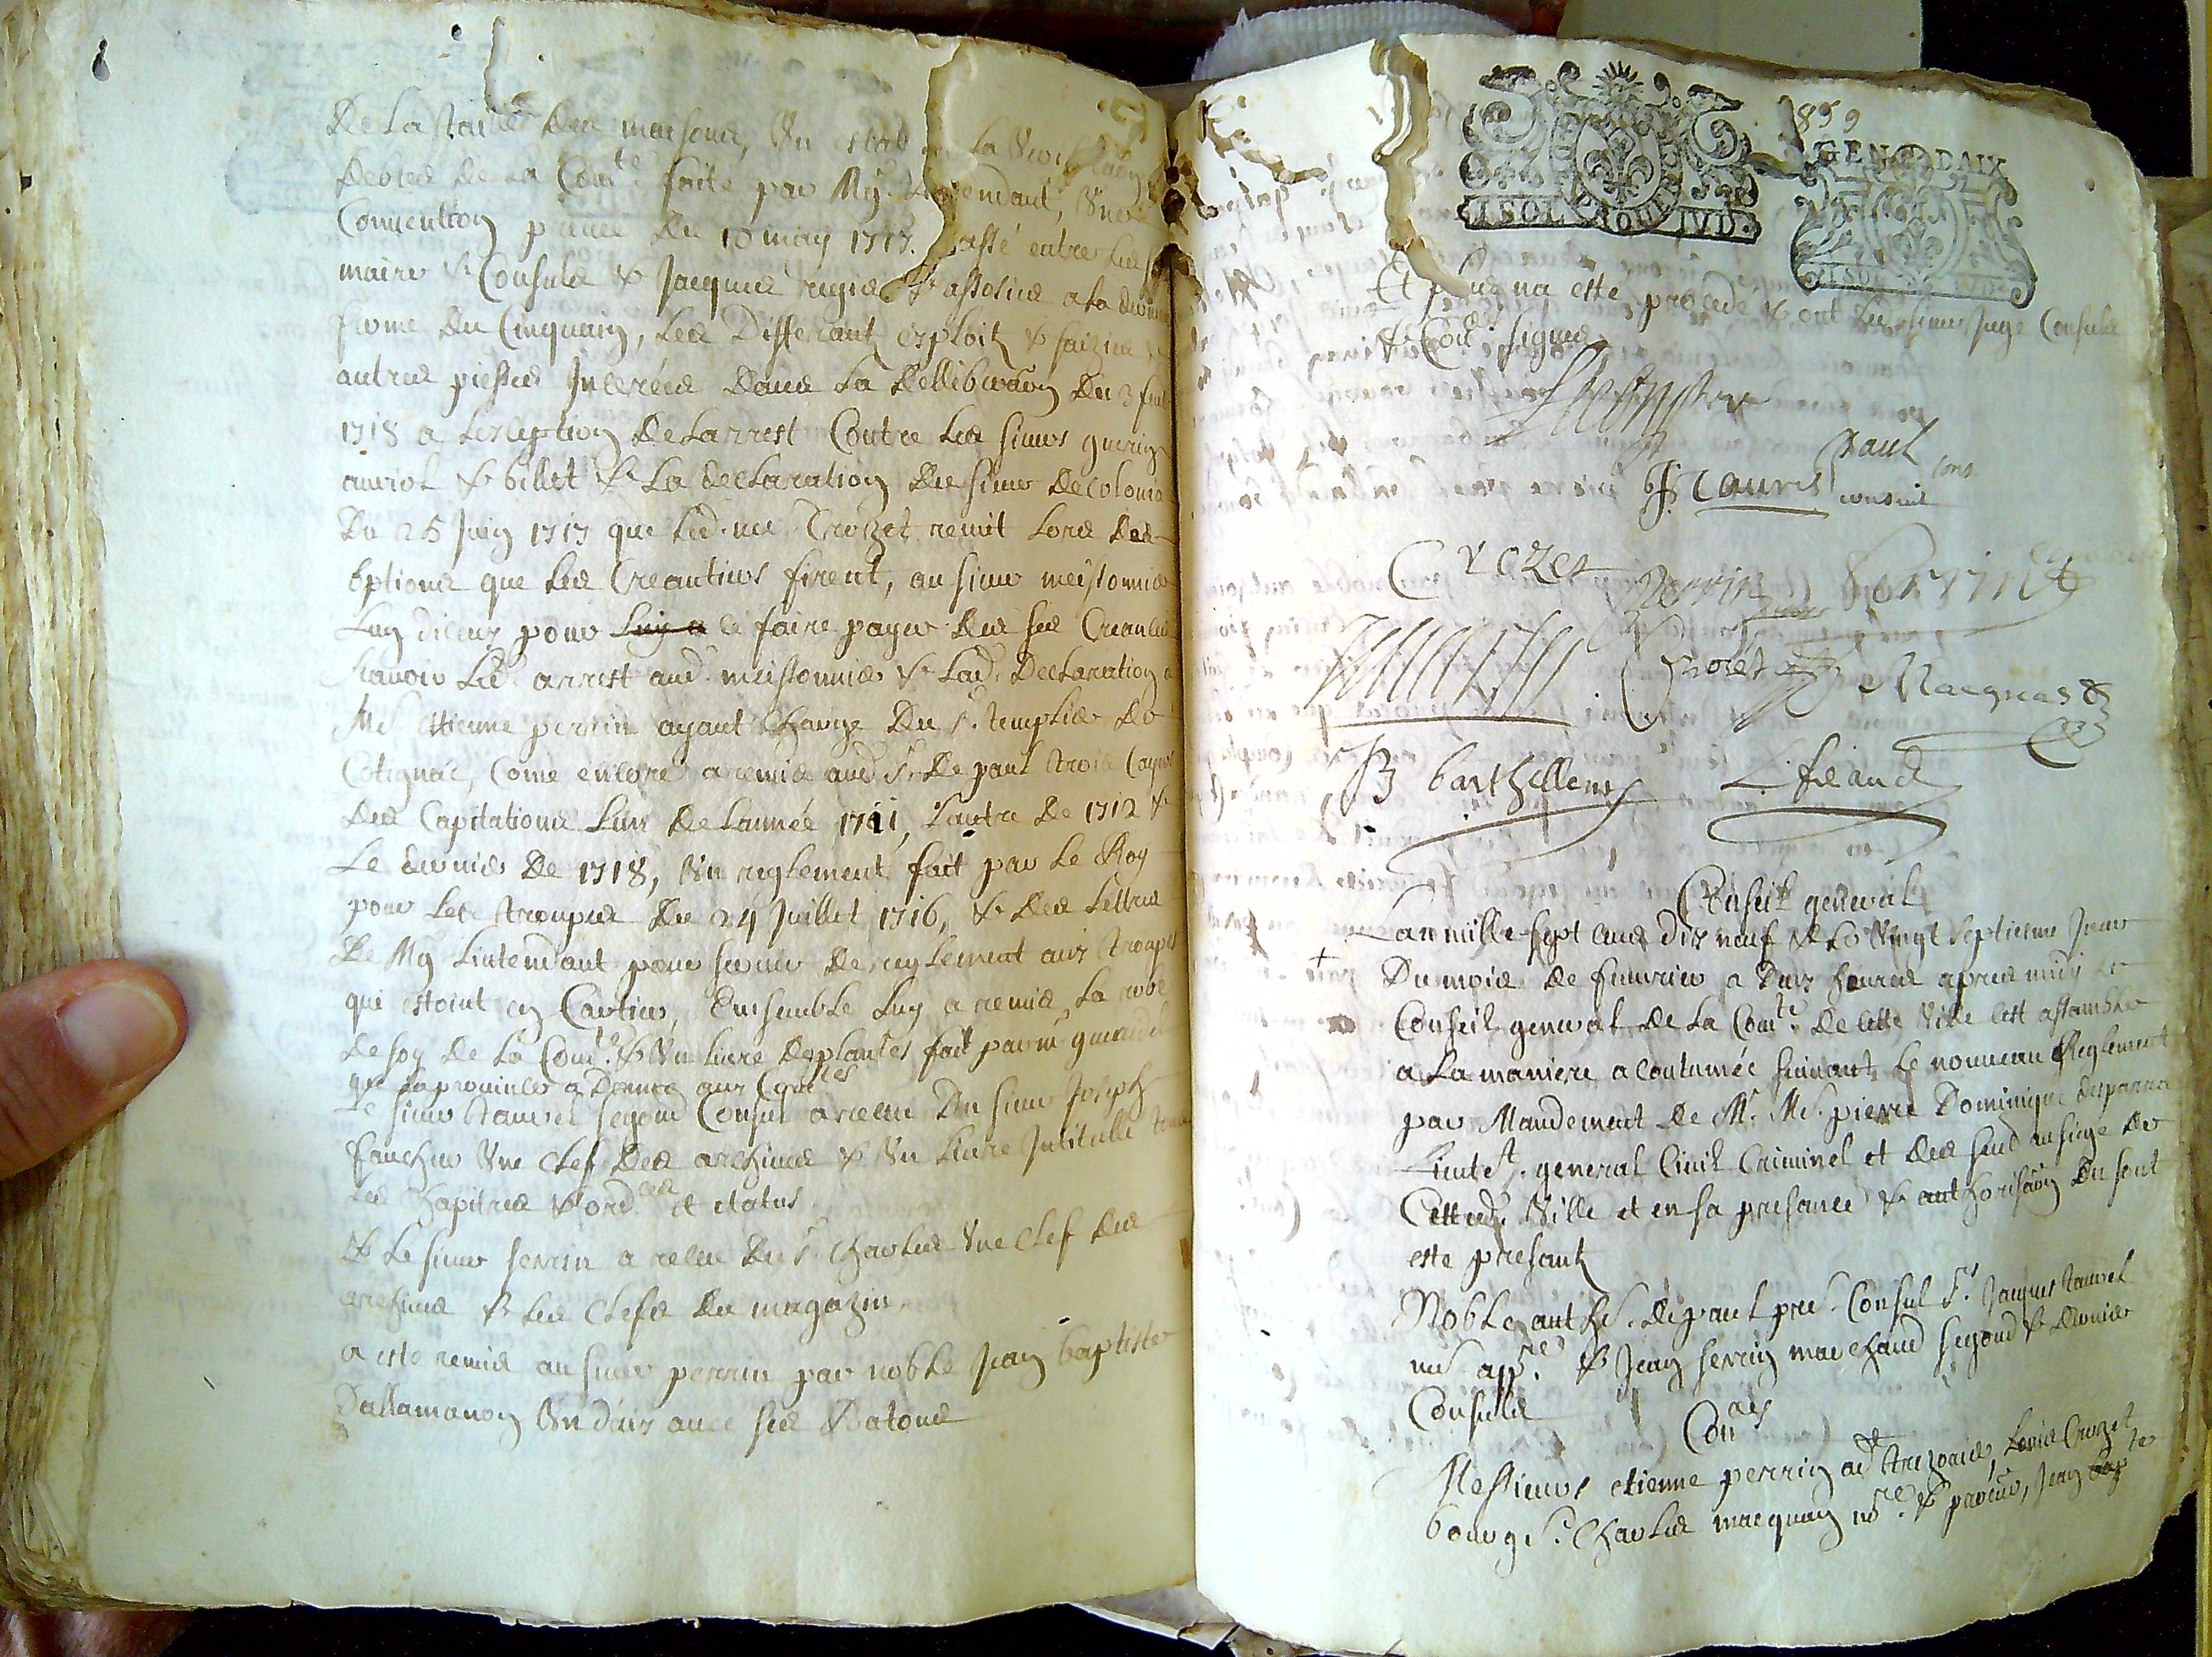 De La taille des maisons, Un estat de La
debtes de La Com.te faite par Mg.r Lintendant, Une
Convention privée du 10 may 1717. passé entre les s.rs
maire & Consuls & Jacques & assosies a la
ferme du Cinquain, les Differants exploits & saizies &
autres piesses Inserées dans La dellibera͞on Du 3 feu
1718 a Lexseption de Larrest Contre les sieurs guerin
auriol & billet & La declaration du sieur decolonia
Du 25 Juin 1717 que led. me Crozet remit Lors des
options que les Creantiers firent, au sieur meissonnier
Luy a se faire payer des ses Creanties
scavoir Led. arrest aud. meissonnier & lad. Declaration a
Me etienne perrin ayant charge Du s.r templier de
Cotignac, Come encores a remis aud. s.r De paul trois Cayers
des Capitations Lun de Lannée 1711, Lautre De 1712 &
Le dernier De 1718, Un reglement fait par Le Roy
pour Les troupes Du 24 Juillet 1716, & des Lettres
De Mg Lintendant pour servir de reglement aux troupes
qui estoint en Cartier, Ensemble Luy a remis La robe
de soy de La Com.té & Un livre fait par m
que La province a Donné aux Co͞m.tés
Le sieur taurel segond Consul a releu Du sieur Joseph
fauchier Une clef des archives & Un Livre Intitulle
Les Chapitres & ord.ces et status
& Le sieur serrin a releu Du s.r Charles Une Clef des
archives & Les Clefs Du magazin
a esté remis au sieur perrin par noble Jean baptiste
Dallamanon Un dais avec ses Batons
859
GEN DAIX
ISOL IVD
Et plus na este procede & ont Les sieurs Juge Consuls
& Con.rs signes
Paul
cons
Jq Taurel consul
Crozet Perrin Serrin
Crozet Macquan
JB barthellemy L. feaud
Conseil general
Lan mille sept cens dix neuf & Le Vingt septieme Jour
Du mois de feuvrier a Deux heures apres midy Le
Conseil general de La Com.te de cette Ville cest assamblée
a La maniere acoutumée suivant Le nouveau Reglement
par Mandement De M.r Me. pierre Dominique desparra
Lieute.t general Civil Criminel et des sieges au siege de
Cetted. Ville et en sa presance & authorisa͞on Du sont
este presants
Noble anthe. de paul pre.r Consul s.r Jacques taurel
me app.re & Jean serrin marchand segond & dernier
Consuls
Con.ers
Messieurs etienne perrin ad.t tresorier, Louis Crozet
bourg.s Charles macquan no.re & pareur, Jean bap.te